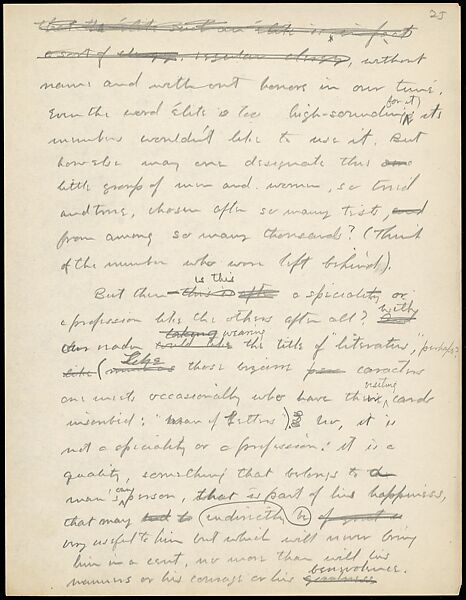 25
that the élite such an élite is, in fact
a sort of class, irregular class, without
name and without honors in our time.
Even the word élite is too high-sounding (for it), its
members wouldn't like to use it. But
how else may one designate this
little group of men and women, so tried
and true, chosen after so many tests, and
from among so many thousand? (Think
of the number who were left behind).
is this
But then this is after a speciality or
a profession like the others after all?
taking wearing
reader would like the title of "literatus", perhaps?
like (such as Like those bizarre caracters
visiting
one meets occasionally who have their cards
inscribed: "Man of Letters") No, it is
not a speciality or a profession: it is a
quality, something that belongs to a
man's any person, that is part of his happiness,
that may indirectly be
very useful to him but which will never bring
him in a cent, no more than will his
benevolence.
manners or his courage or his goodness